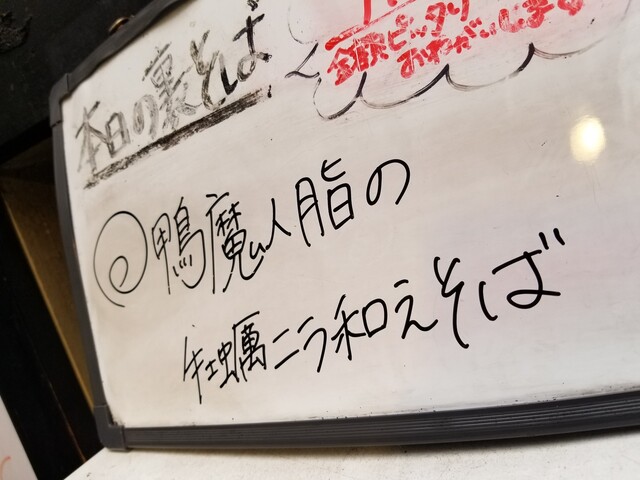 本日の裏そば
金額ピッタリ
おねがいします
鴨魔人脂の
牡蠣ニラ和えそば